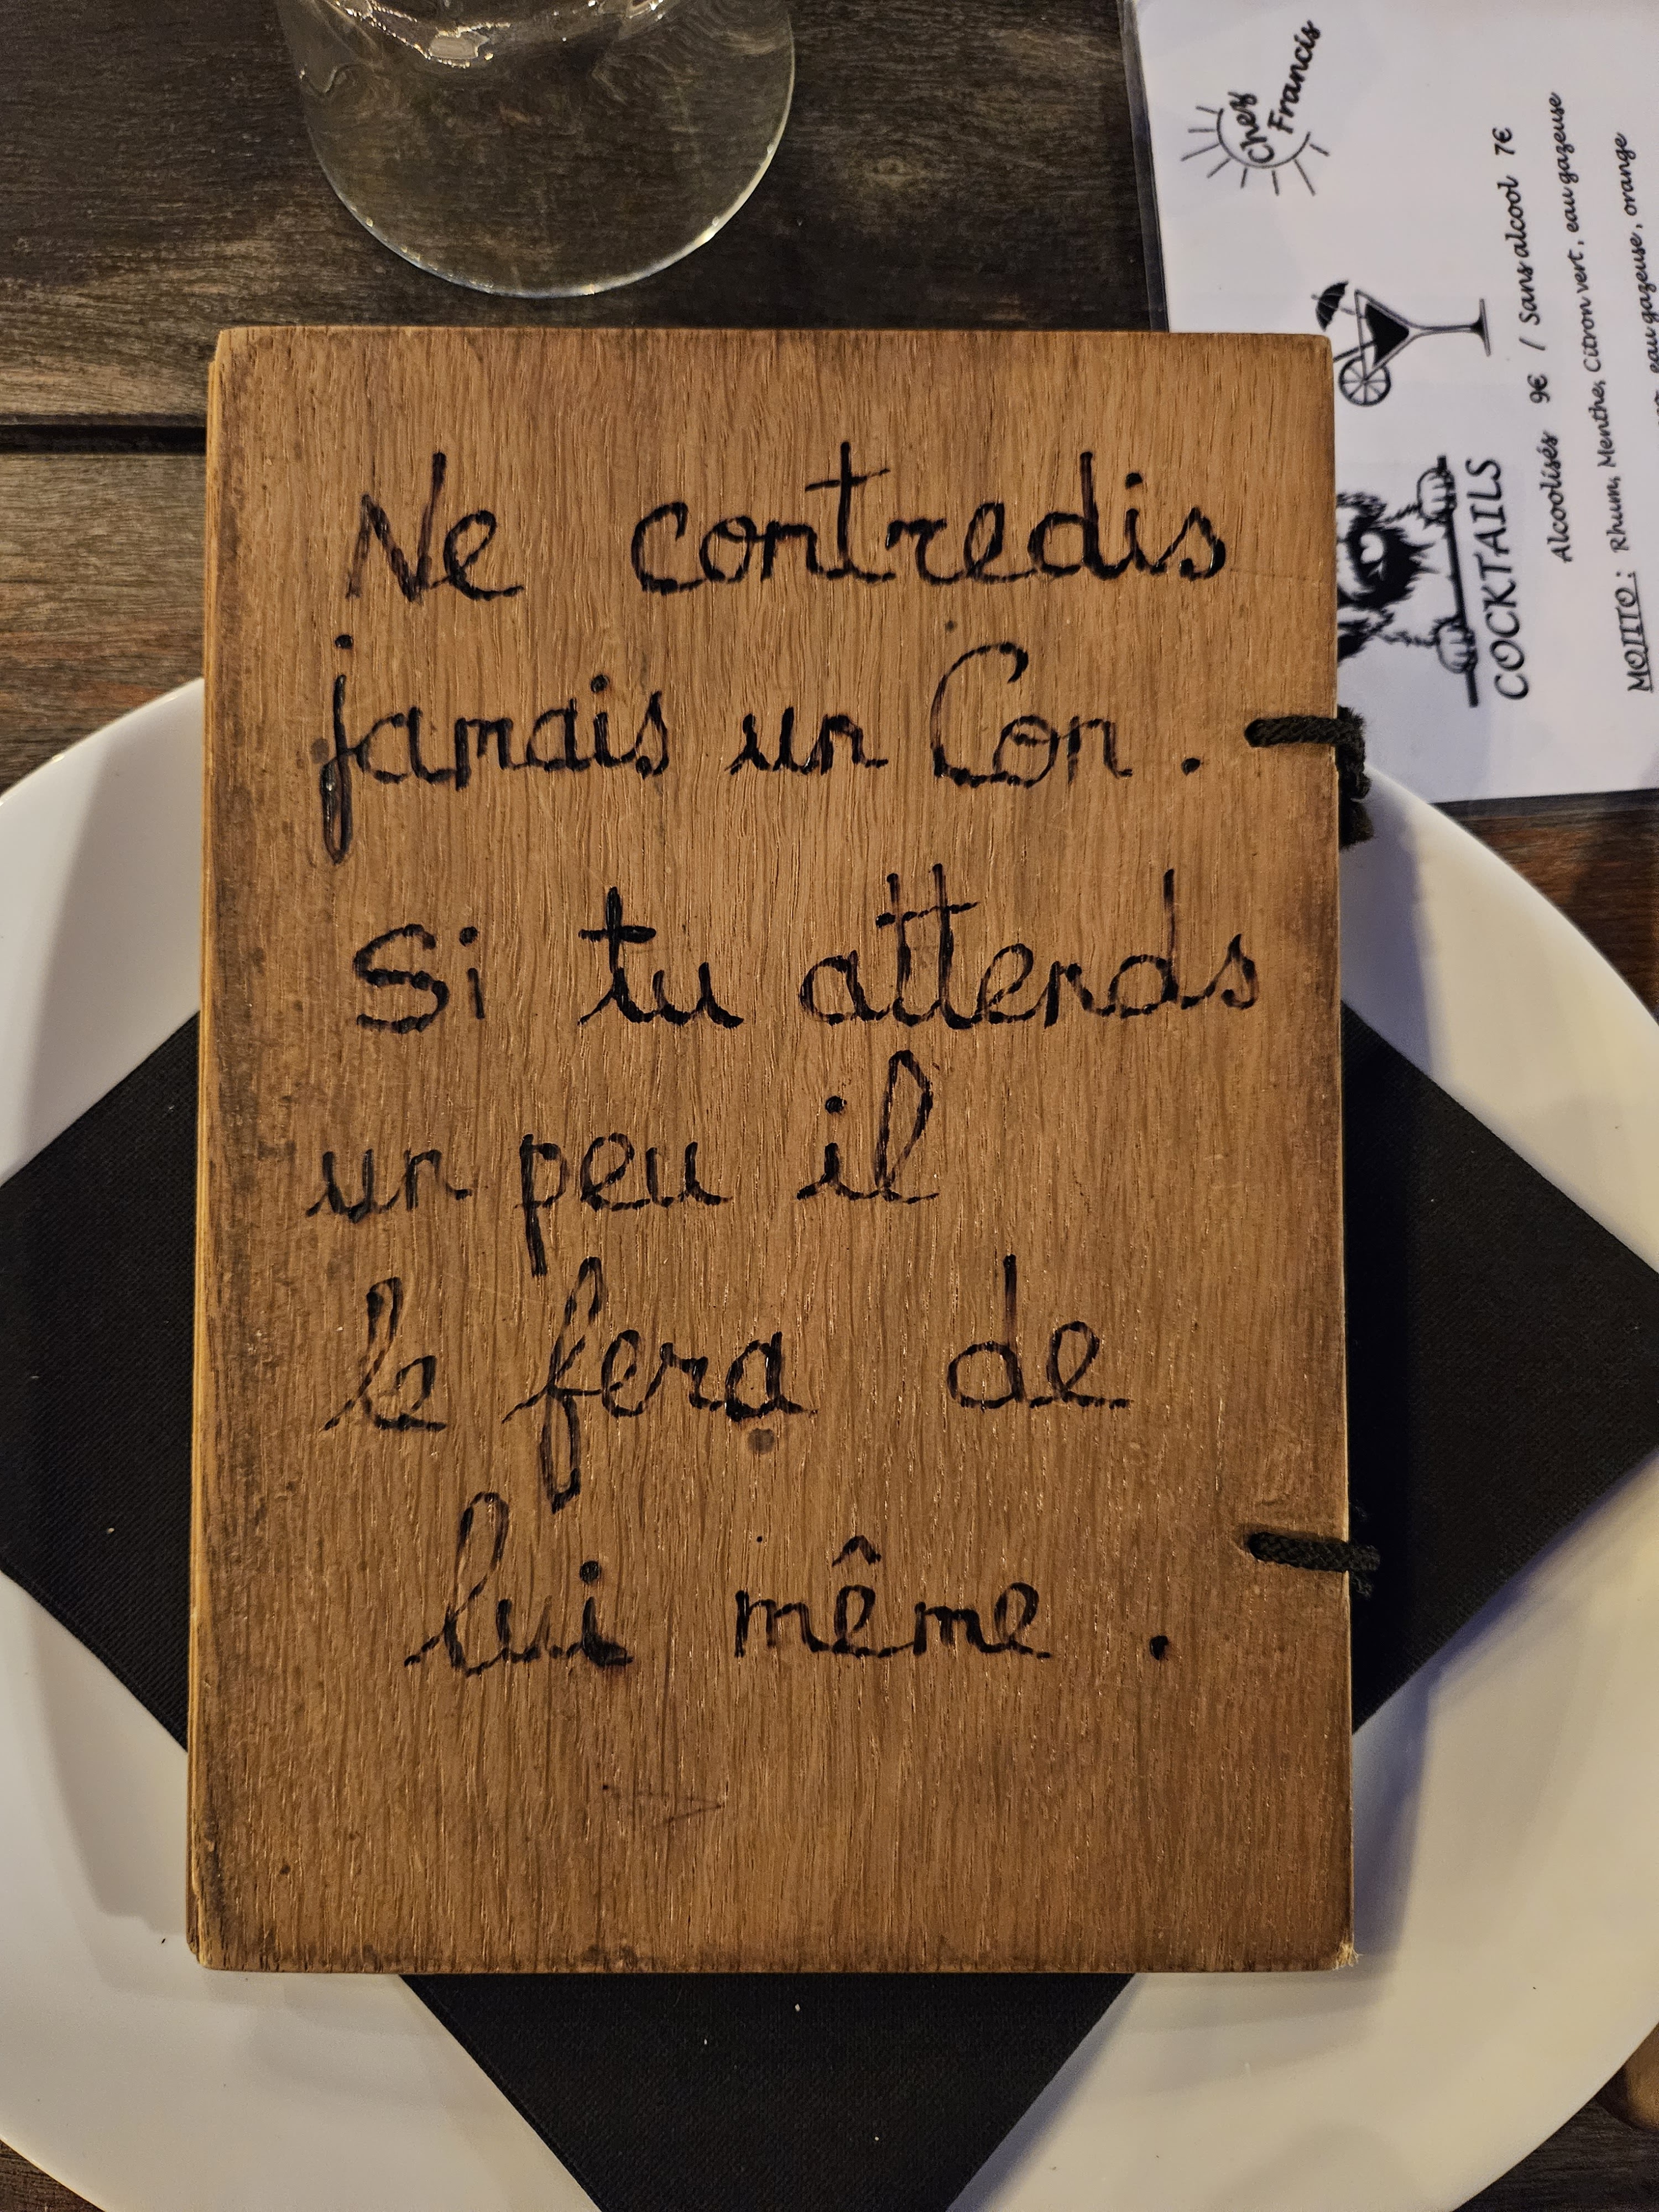 Ne contredis
jamais un Con.
Si tu attends
un peu il
le fera de
lui même.
Chez
Francis
COCKTAILS
Alcoolisés 9€ / Sans alcool 7€
MOJITO: Rhum, Menthe, Citron vert, eau gazeuse
eau gazeuse, orange